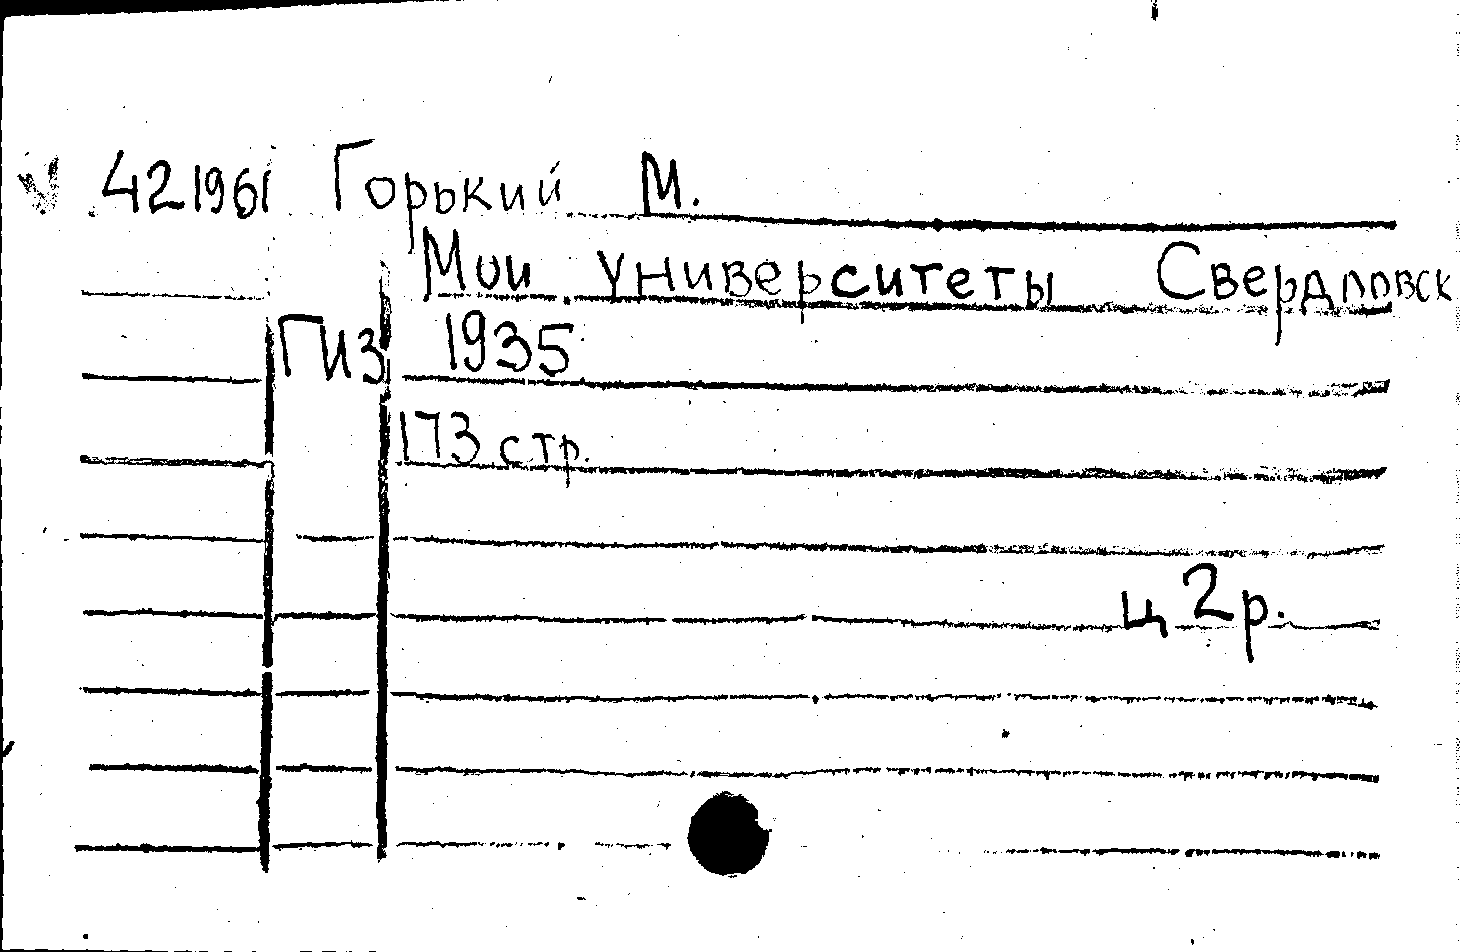 421961 Горький М.
Мои университеты Свердловск
ГИЗ 1935
173 стр.
ц 2 р.